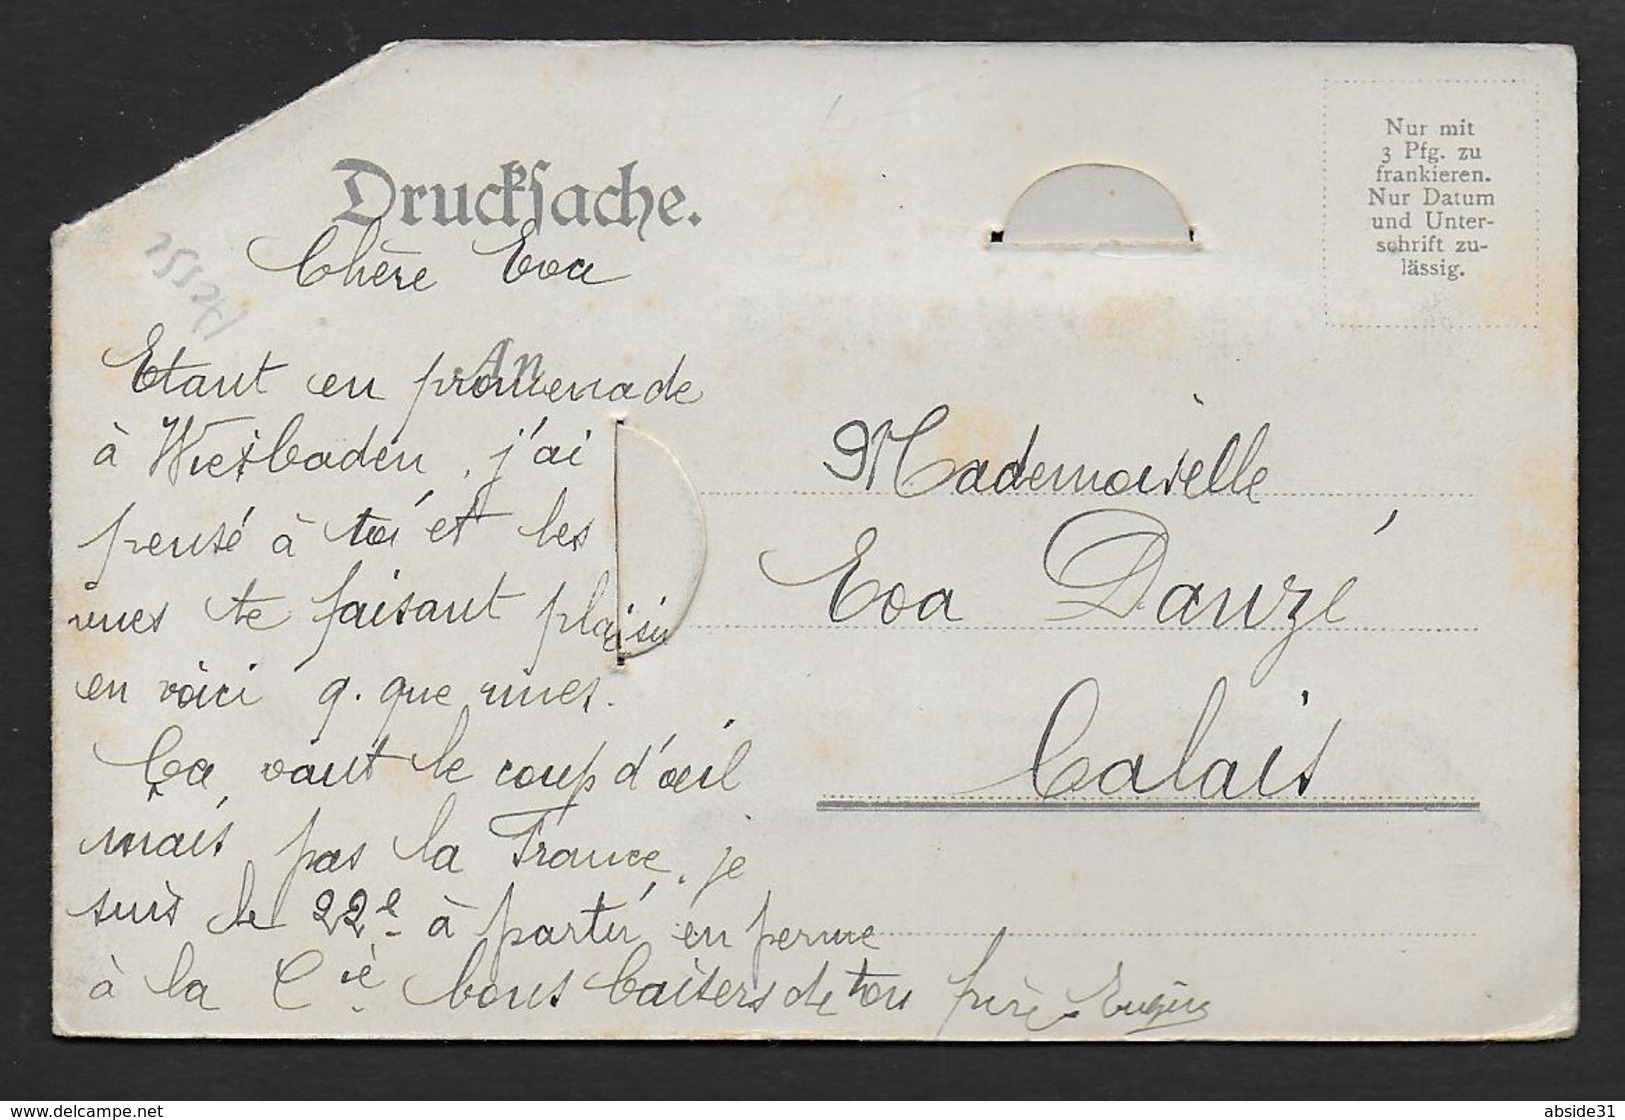 Drucksache.
Nur mit
3 Pfg. zu
frankieren.
Nur Datum
und Unter-
schrift zu-
lässig.
Chère Eva
Etant en promenade
à Wiesbaden, j'ai
pensé à toi et les
vues te faisant plaisir
en voici q. que unes.
Ca vaut le coup d'œil
mais pas la France, je
suis le 22e à partir en perme
à la Cie bons baisers de ton frère Eugène
Mademoiselle
Eva Dauzé
Calais
abside31